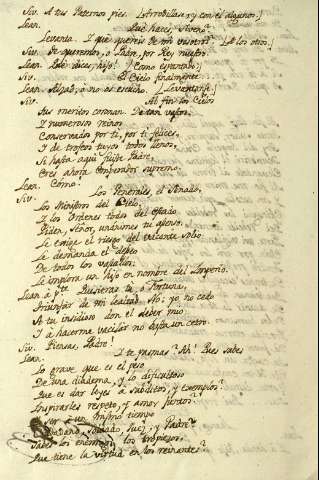 Siv. A tus Paternos pies. [Arrodillase, y con el algunos.]
Lean. Qué haces, Siveno?
Levanta. I qué quereis de mi vosotros? [A los otros.]
Siv. Te queremos, o Padre, por Rey nuestro.
Lean. Qué dices, hijo! [Como espantado.]
Siv. El Cielo finalmente.
Lean. Alzad; ó no os escucho. [Levantanse.]
Siv. Al fin los Cielos
Tus meritos coronan. De tan vastos,
I numerosos Reinos
Conservados por ti, por ti felices,
I de trofeos tuyos todos llenos,
Si hasta aqui fuiste Padre,
Eres ahora Emperador supremo.
Lean. Cómo.
Siv. Los Generales, el Senado,
Los Ministros del Cielo,
I los Ordenes todos del Estado
Piden, Señor, unánimes tu asenso.
Le exige el riesgo del vacante solio
Le demanda el deseo
De todos los vasallos:
Le implora un hijo en nombre del Imperio.
Lean. A fe Quisieras tu, o Fortuna,
Triunfar de mi lealtad. No: yo no cedo
A tu insidioso don el deber mio
I á hacerme vacilar no basta un cetro.
Siv. Piensas, Padre!
Lean. I te pasmas? Ah! Pues sabes
Lo grave que es el peso
De una diadema, y lo dificultoso
Que es dar leyes á subditos, y exemplos?
Inspirarles respeto, y amor juntos?
Ser á un mismo tiempo
Ciudadano, Soldado, Juez, y Padre?
Sabes los enemigos, los tropiezos
Que tiene la virtud en los reinantes?